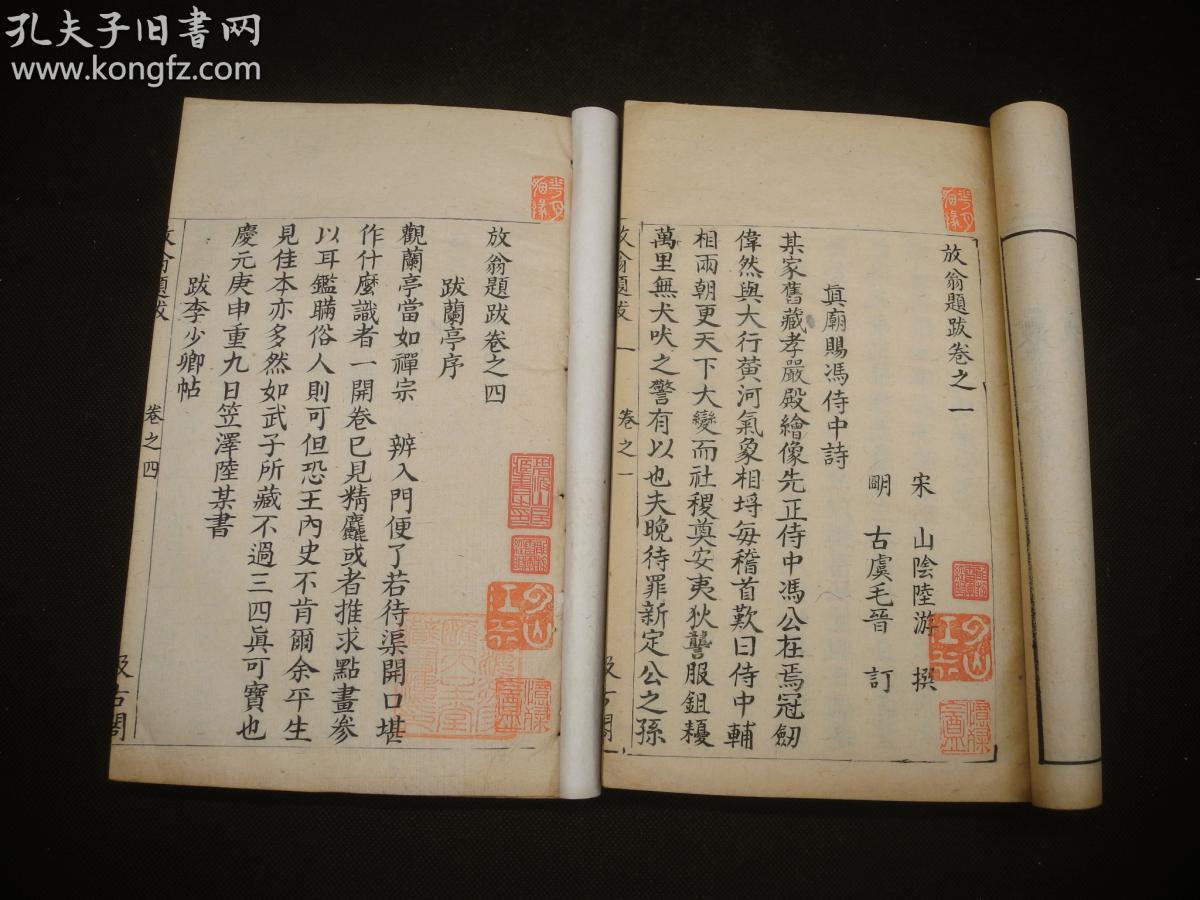 孔夫子旧书网
www.kongfz.com
放翁題跋卷之一
宋　山陰陸游　撰
明　古虞毛晉　訂
眞廟賜馮侍中詩
某家舊藏孝嚴殿繪像先正侍中馮公在焉冠劒
偉然與大行黄河氣象相埒每稽首歎曰侍中輔
相兩朝更天下大變而社稷奠安夷狄讋服鉏耰
萬里無犬吠之警有以也夫晚待罪新定公之孫
放翁題跋　一　卷之一
放翁題跋卷之四
跋蘭亭序
觀蘭亭當如禪宗　辨入門便了若待渠開口堪
作什麼識者一開卷已見精麤或者推求點畫參
以耳鑑瞞俗人則可但恐王內史不肯爾余平生
見佳本亦多然如武子所藏不過三四眞可寶也
慶元庚申重九日笠澤陸某書
跋李少卿帖
放翁題跋　卷之四　汲古閣